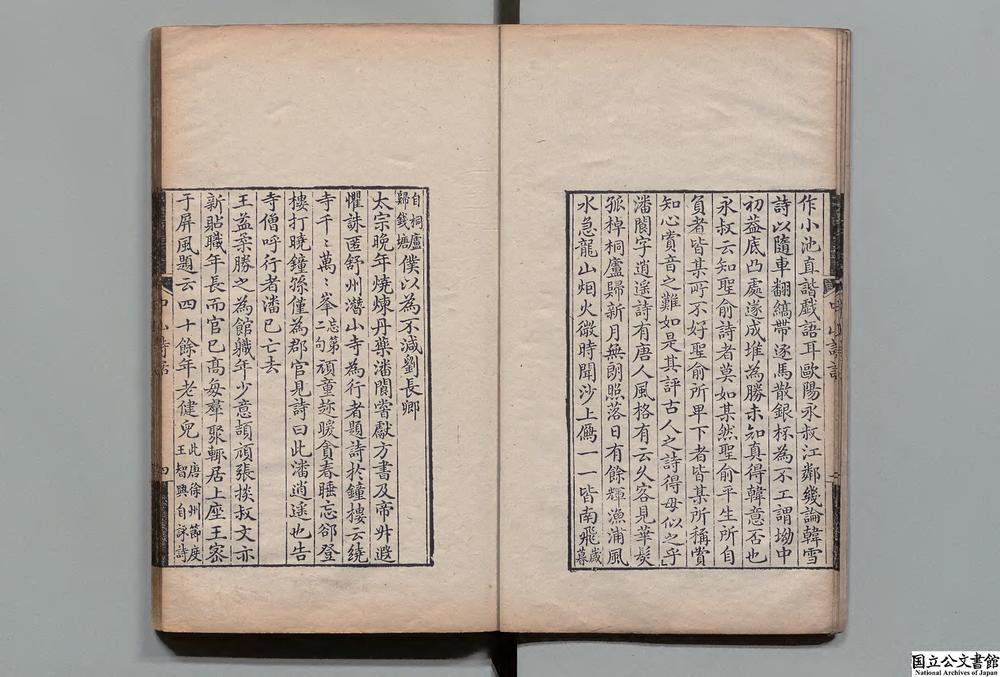 作小池直諧戲語耳歐陽永叔江鄰幾論韓雪
詩以隨車翻縞帶逐馬散銀杯為不工謂坳中
初蓋底凸處遂成堆為勝未知真得韓意否也
永叔云知聖俞詩者莫如某然聖俞平生所自
負者皆某所不好聖俞所卑下者皆某所稱賞
知心賞音之難如是其評古人之詩得毋似之乎
潘閬字逍遥詩有唐人風格有云久客見華髮
孤棹桐廬歸新月無朗照落日有餘輝漁浦風
水急龍山烟火微時聞沙上鴈一一皆南飛歲暮
自桐廬歸錢塘僕以為不減劉長卿
太宗晚年燒煉丹藥潘閬嘗獻方書及帝升遐
懼誅匿舒州潛山寺為行者題詩於鐘樓云繞
寺千〻萬〻峯忘第二句頑童趂暖貪春睡忘郤登
樓打曉鐘孫僅為郡官見詩曰此潘逍遥也告
寺僧呼行者潘已亡去
王益柔勝之為館職年少意頡頏張掞叔文亦
新貼職年長而官已高每羣聚輒居上座王密
于屏風題云四十餘年老健兒此唐徐州節度王智興自詠詩
中山詩話
四
国立公文書館
National Archives of Japan